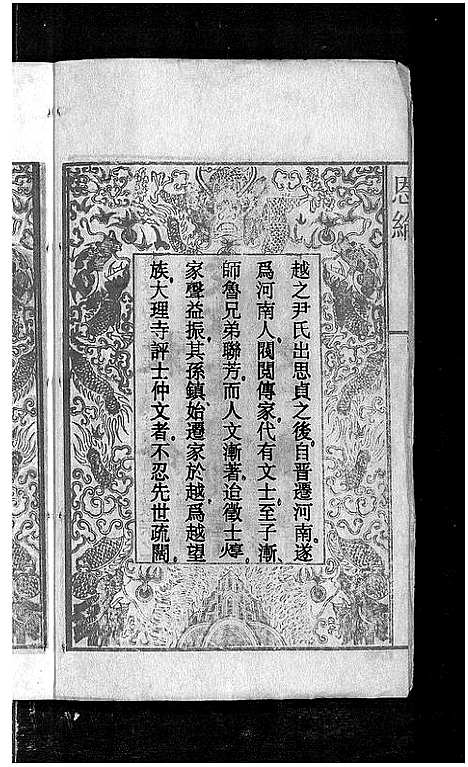 恩綸
越之尹氏出思貞之後。自晋遷河南。遂
爲河南人。閥閱傳家。代有文士。至子漸、
師魯兄弟聯芳。而人文漸著。迨徵士焞。
家聲益振。其孫鎮、始遷家於越。爲越望
族。大理寺評士仲文者。不忍先世疏闊。